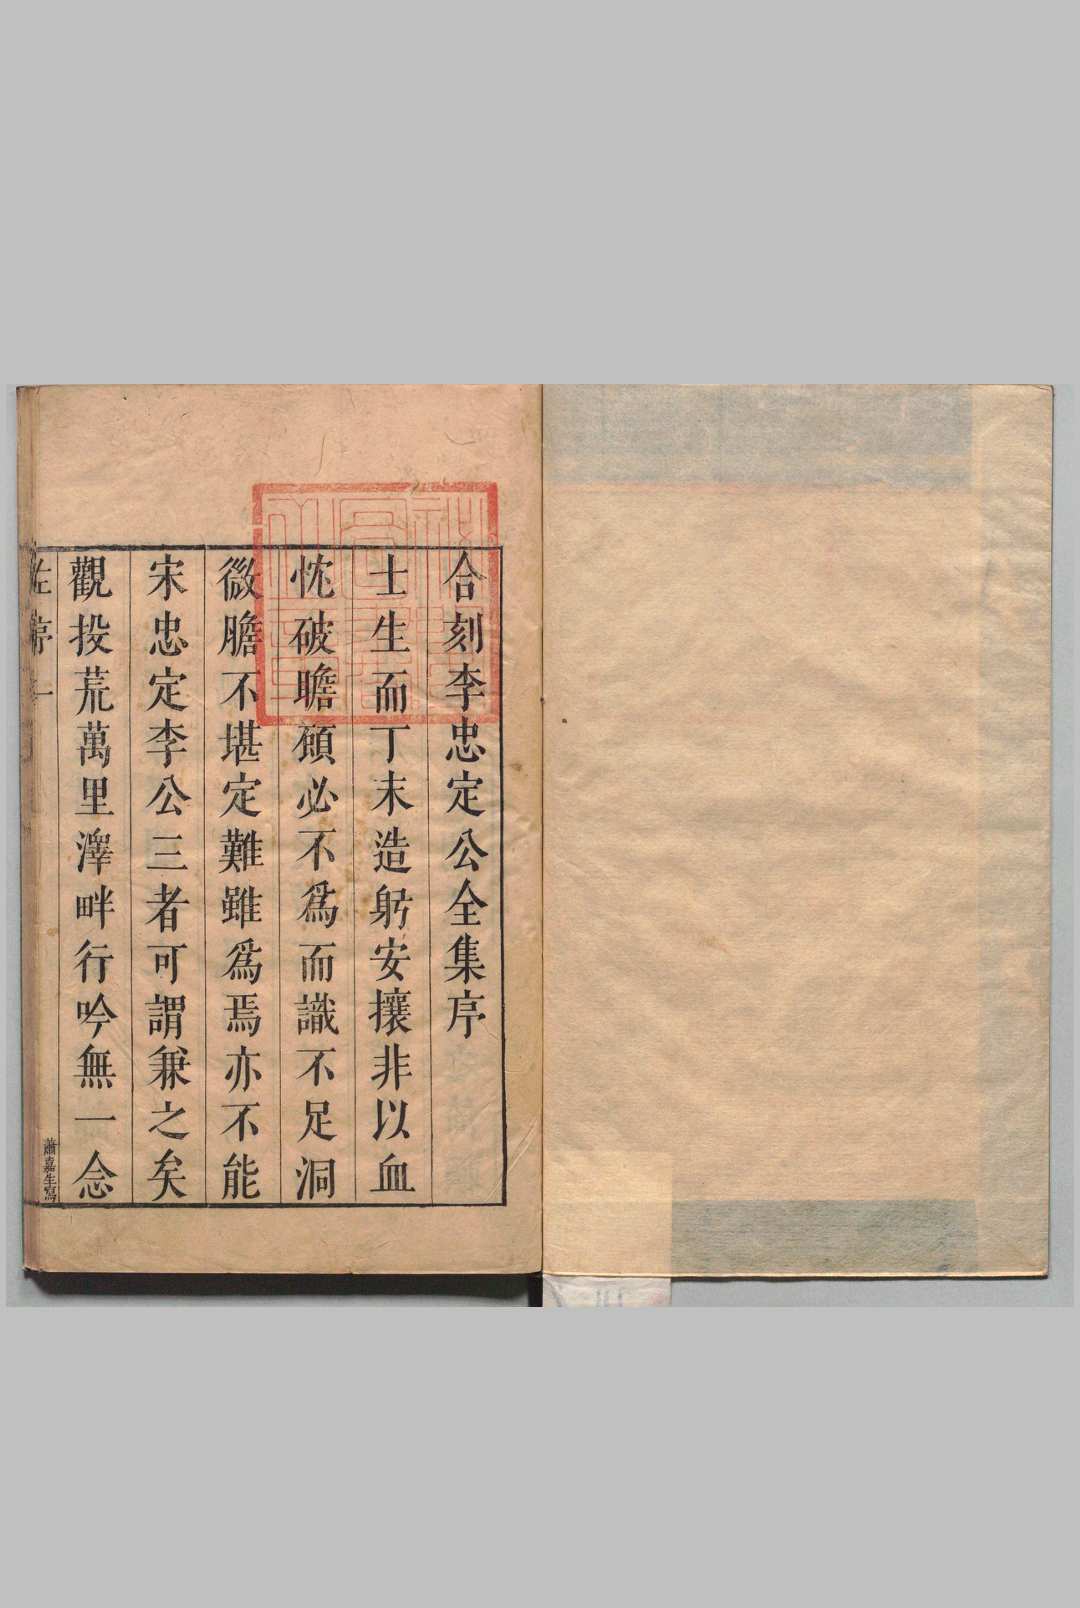 合刻李忠定公全集序
士生而丁末造躬安攘非以血
忱破瞻顧必不爲而識不足洞
微膽不堪定難雖爲焉亦不能
宋忠定李公三者可謂兼之矣
觀投荒萬里澤畔行吟無一念
左序 一
蕭嘉生寫